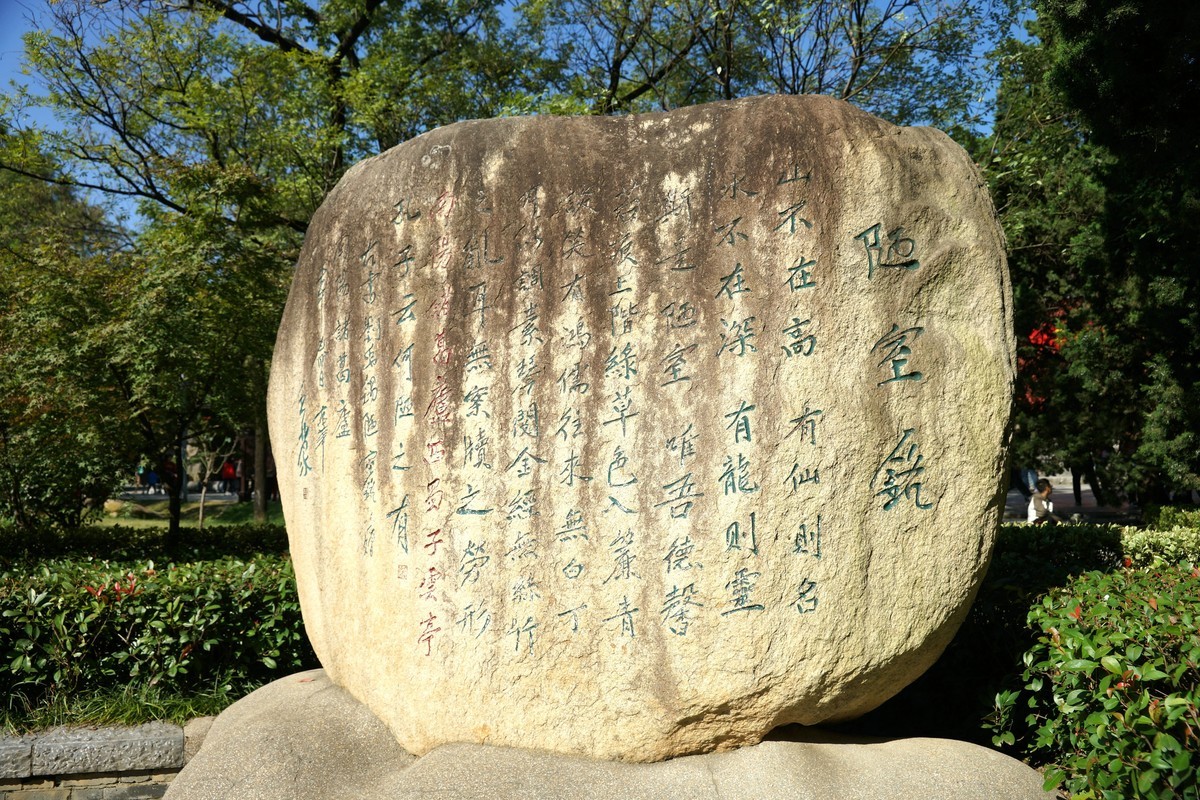 陋室銘
山不在高有仙則名
水不在深有龍則靈
斯是陋室唯吾德馨
苔痕上階綠草色入簾青
談笑有鴻儒往來無白丁
可以調素琴閱金經無絲竹
之亂耳無案牘之勞形
南陽諸葛廬西蜀子雲亭
孔子云何陋之有
右書劉禹錫陋室銘
諸葛廬